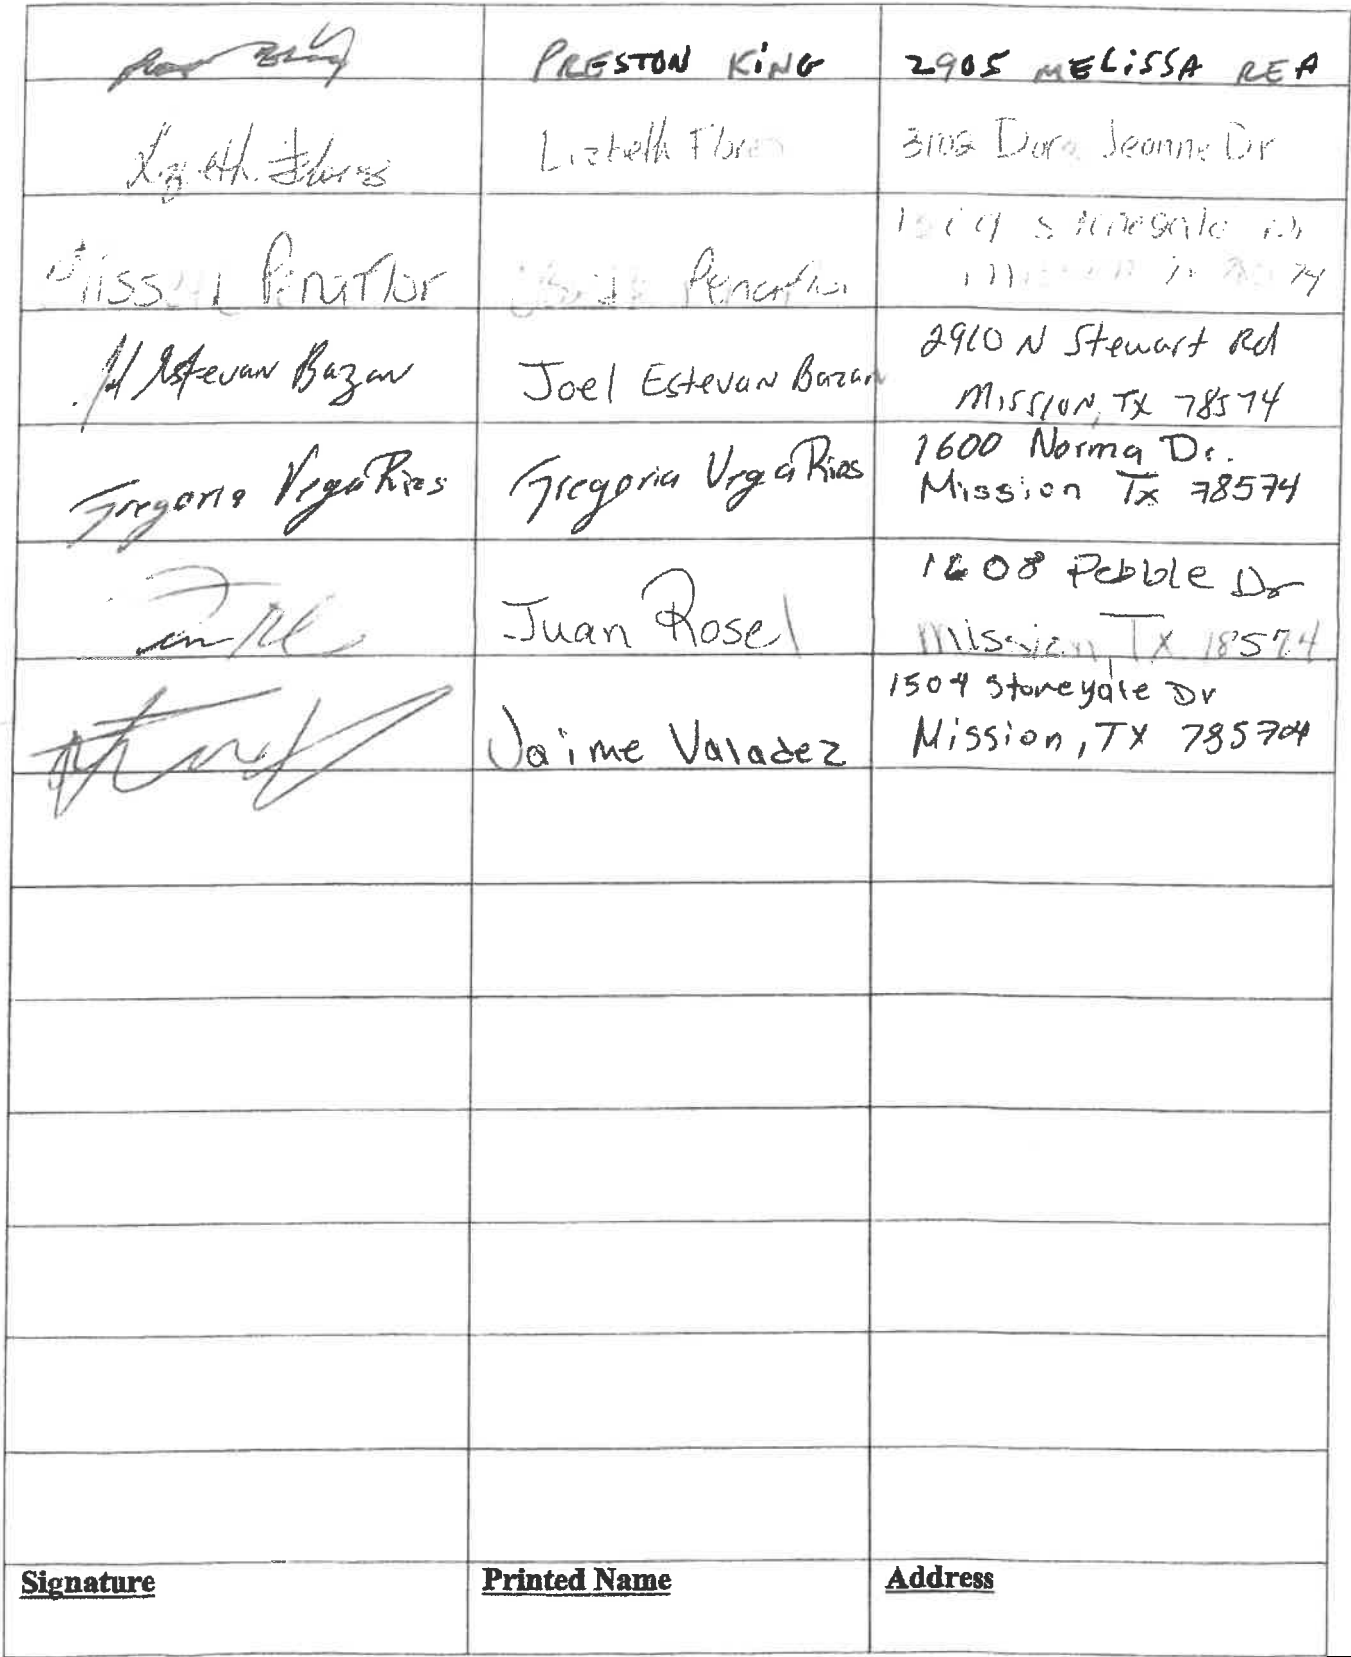 PRESTON KING 2905 MELISSA REA
Lizbeth Flores 3102 Dora Jeanne Dr
Penaflor
74
Estevan Bazan Joel Estevan Bazan 2910 N Stewart Rd
Mission, TX 78574
Gregoria Vega Rios Gregoria Vega Rios 1600 Norma Dr.
Mission Tx 78574
Juan Rosel 1608 Pebble Dr
Mission, TX 78574
Jaime Valadez 1504 Stonegate Dr
Mission, TX 785704
Signature Printed Name Address